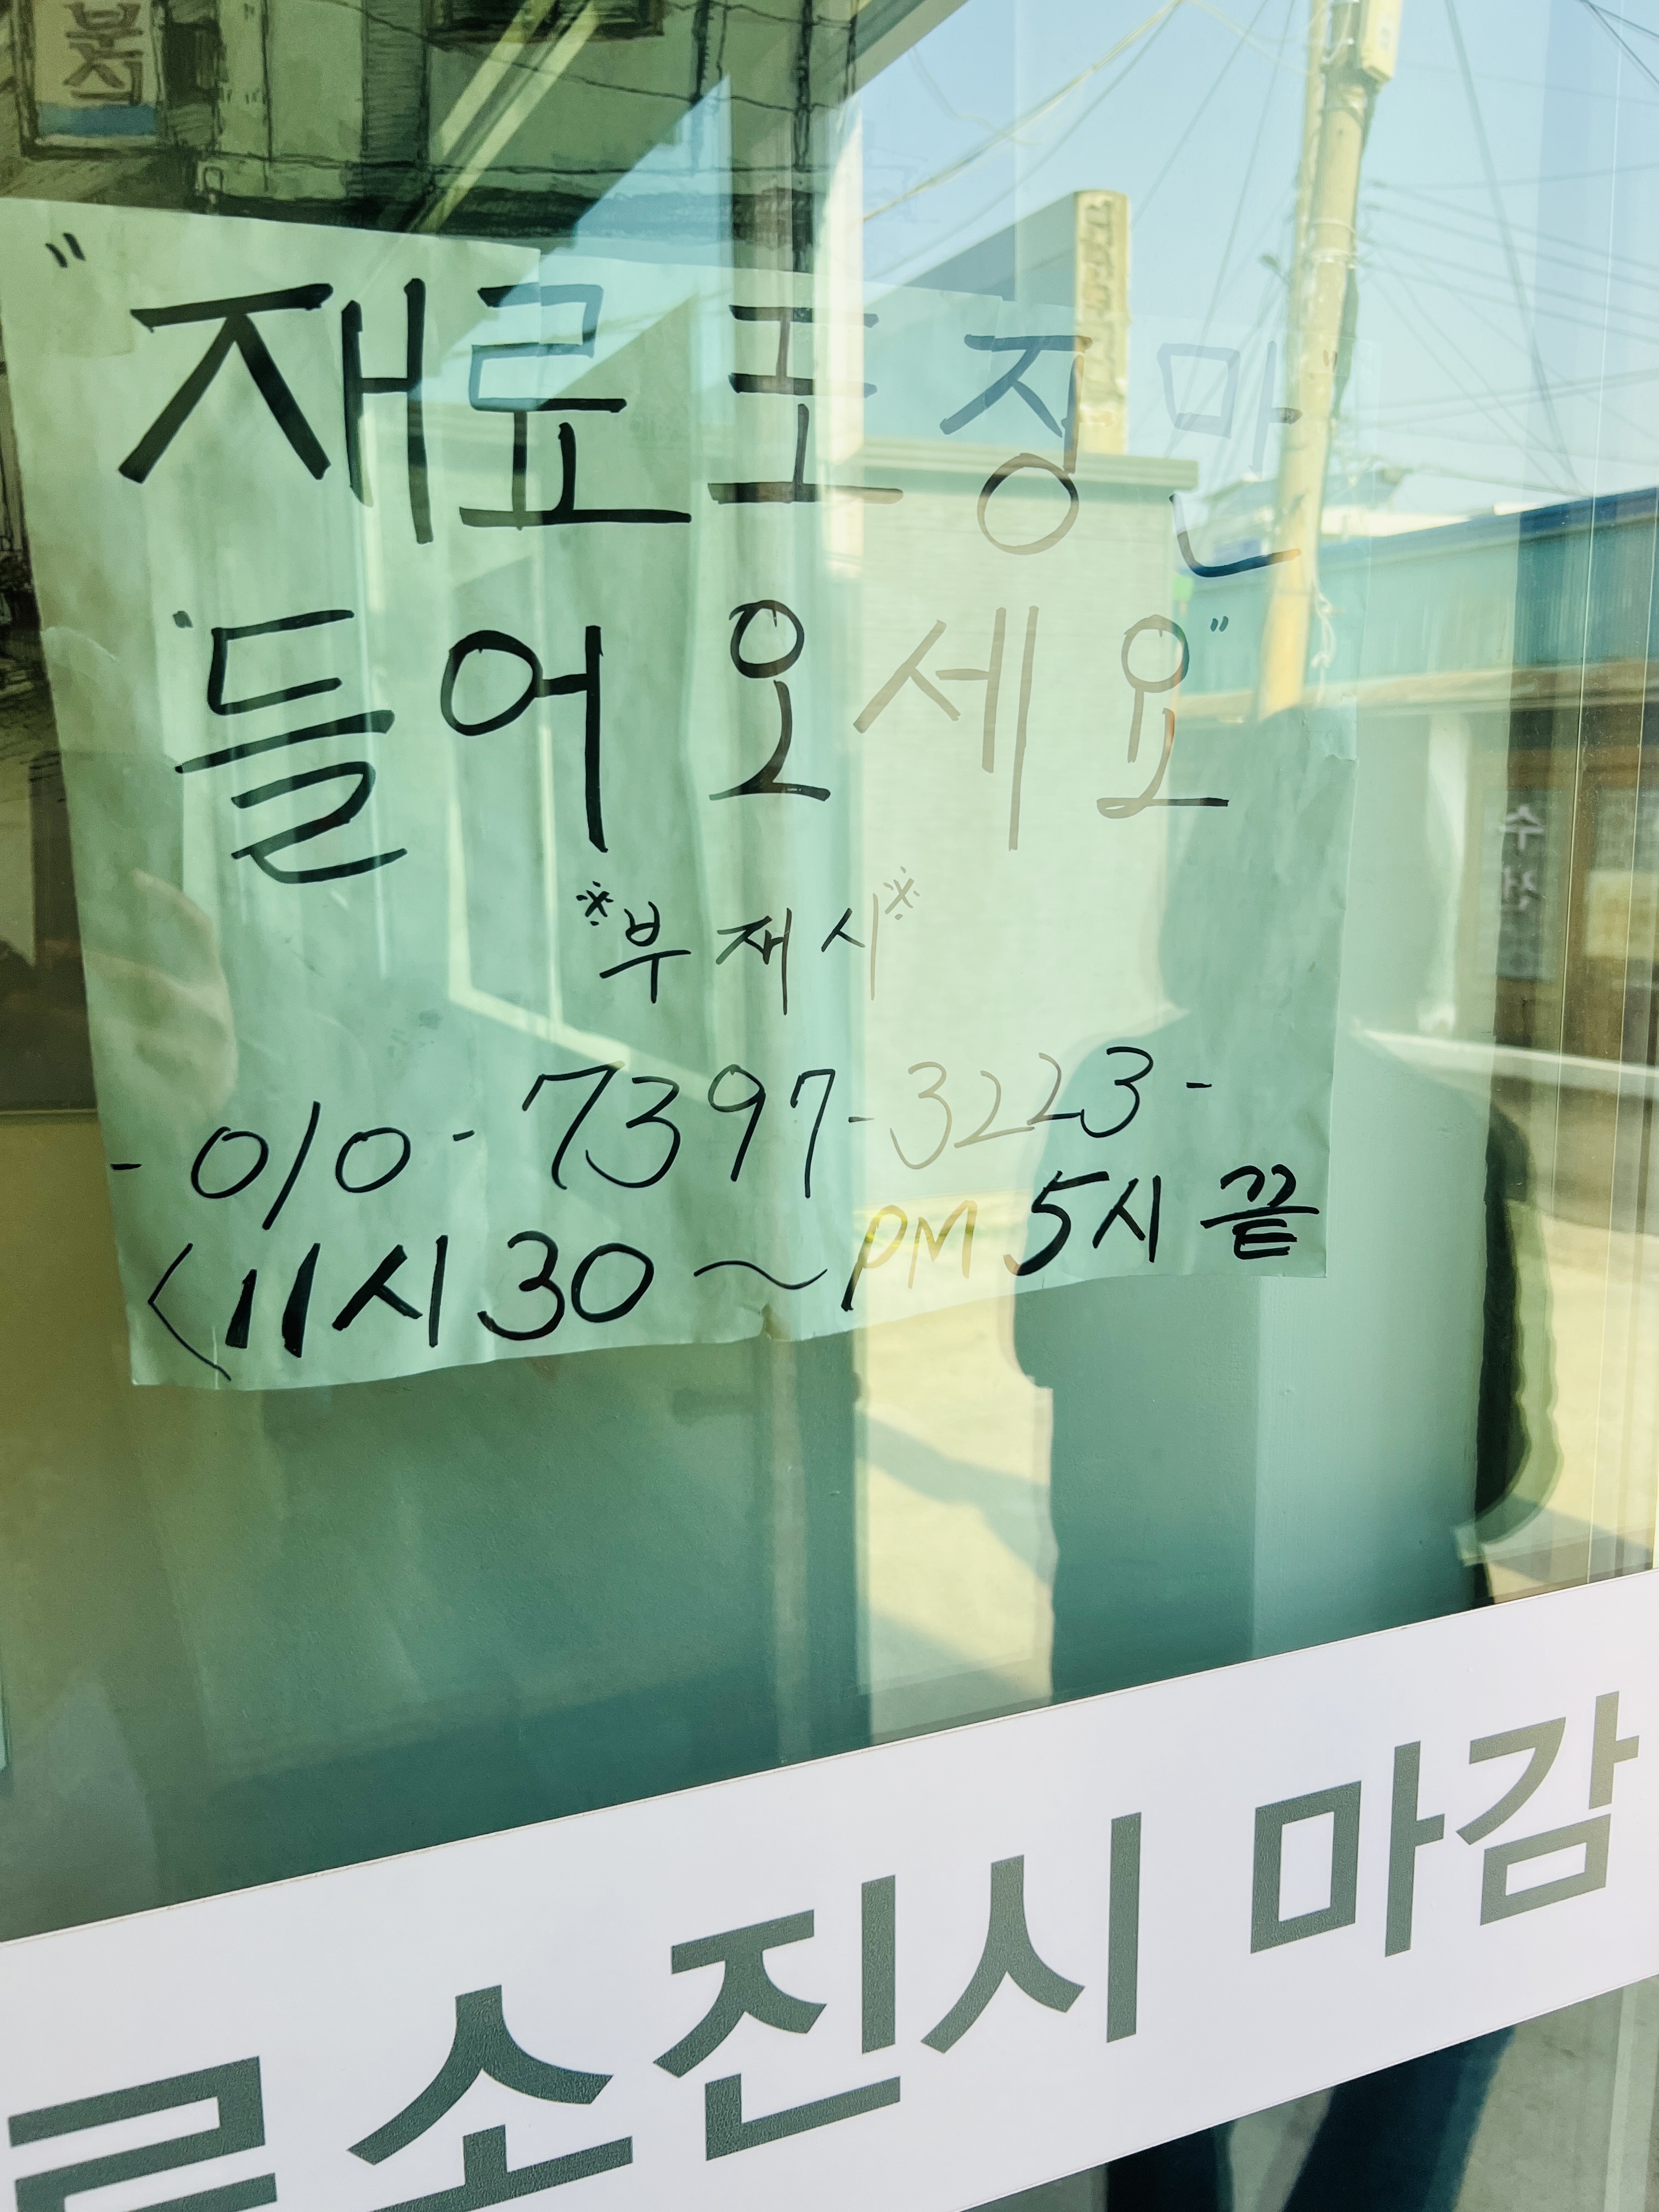 분식
"재료 포장만"
"들어오세요"
※부재시※
- 010 - 7397 - 3223 -
<11시 30 ~ PM 5시 끝
료 소진시 마감